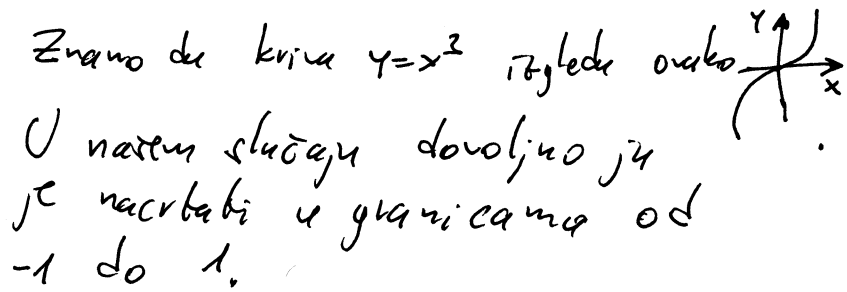 Znamo da kriva y=x³ izgleda ovako Y X.
U našem slučaju dovoljno ju
je nacrtati u granicama od
-1 do 1.